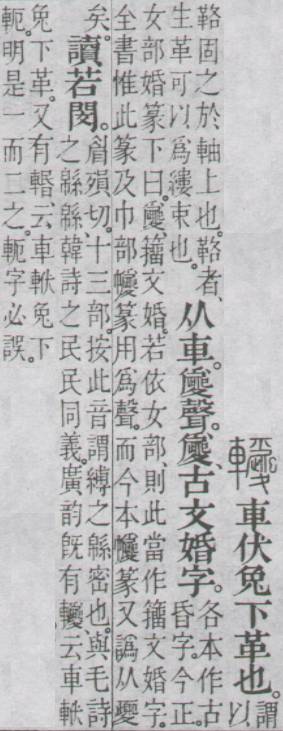 車伏兔下革也。謂
以
鞈固之於軸上也。鞈者、
生革可以爲縷束也。
从車。聲。、古文婚字。
各本作古
昏字。今正。
女部婚篆下曰。、籒文婚。若依女部、則此當作籒文婚字。
全書惟此篆及巾部篆用爲聲。而今本篆又譌从夒
矣。
讀若閔。
眉殞切。十三部。按此音謂縛之緜密也。與毛詩
之緜緜、韓詩之民民同義。廣韵旣有云車
兔下革。又有、云車兔下
軛。明是一而二之。軛字必誤。